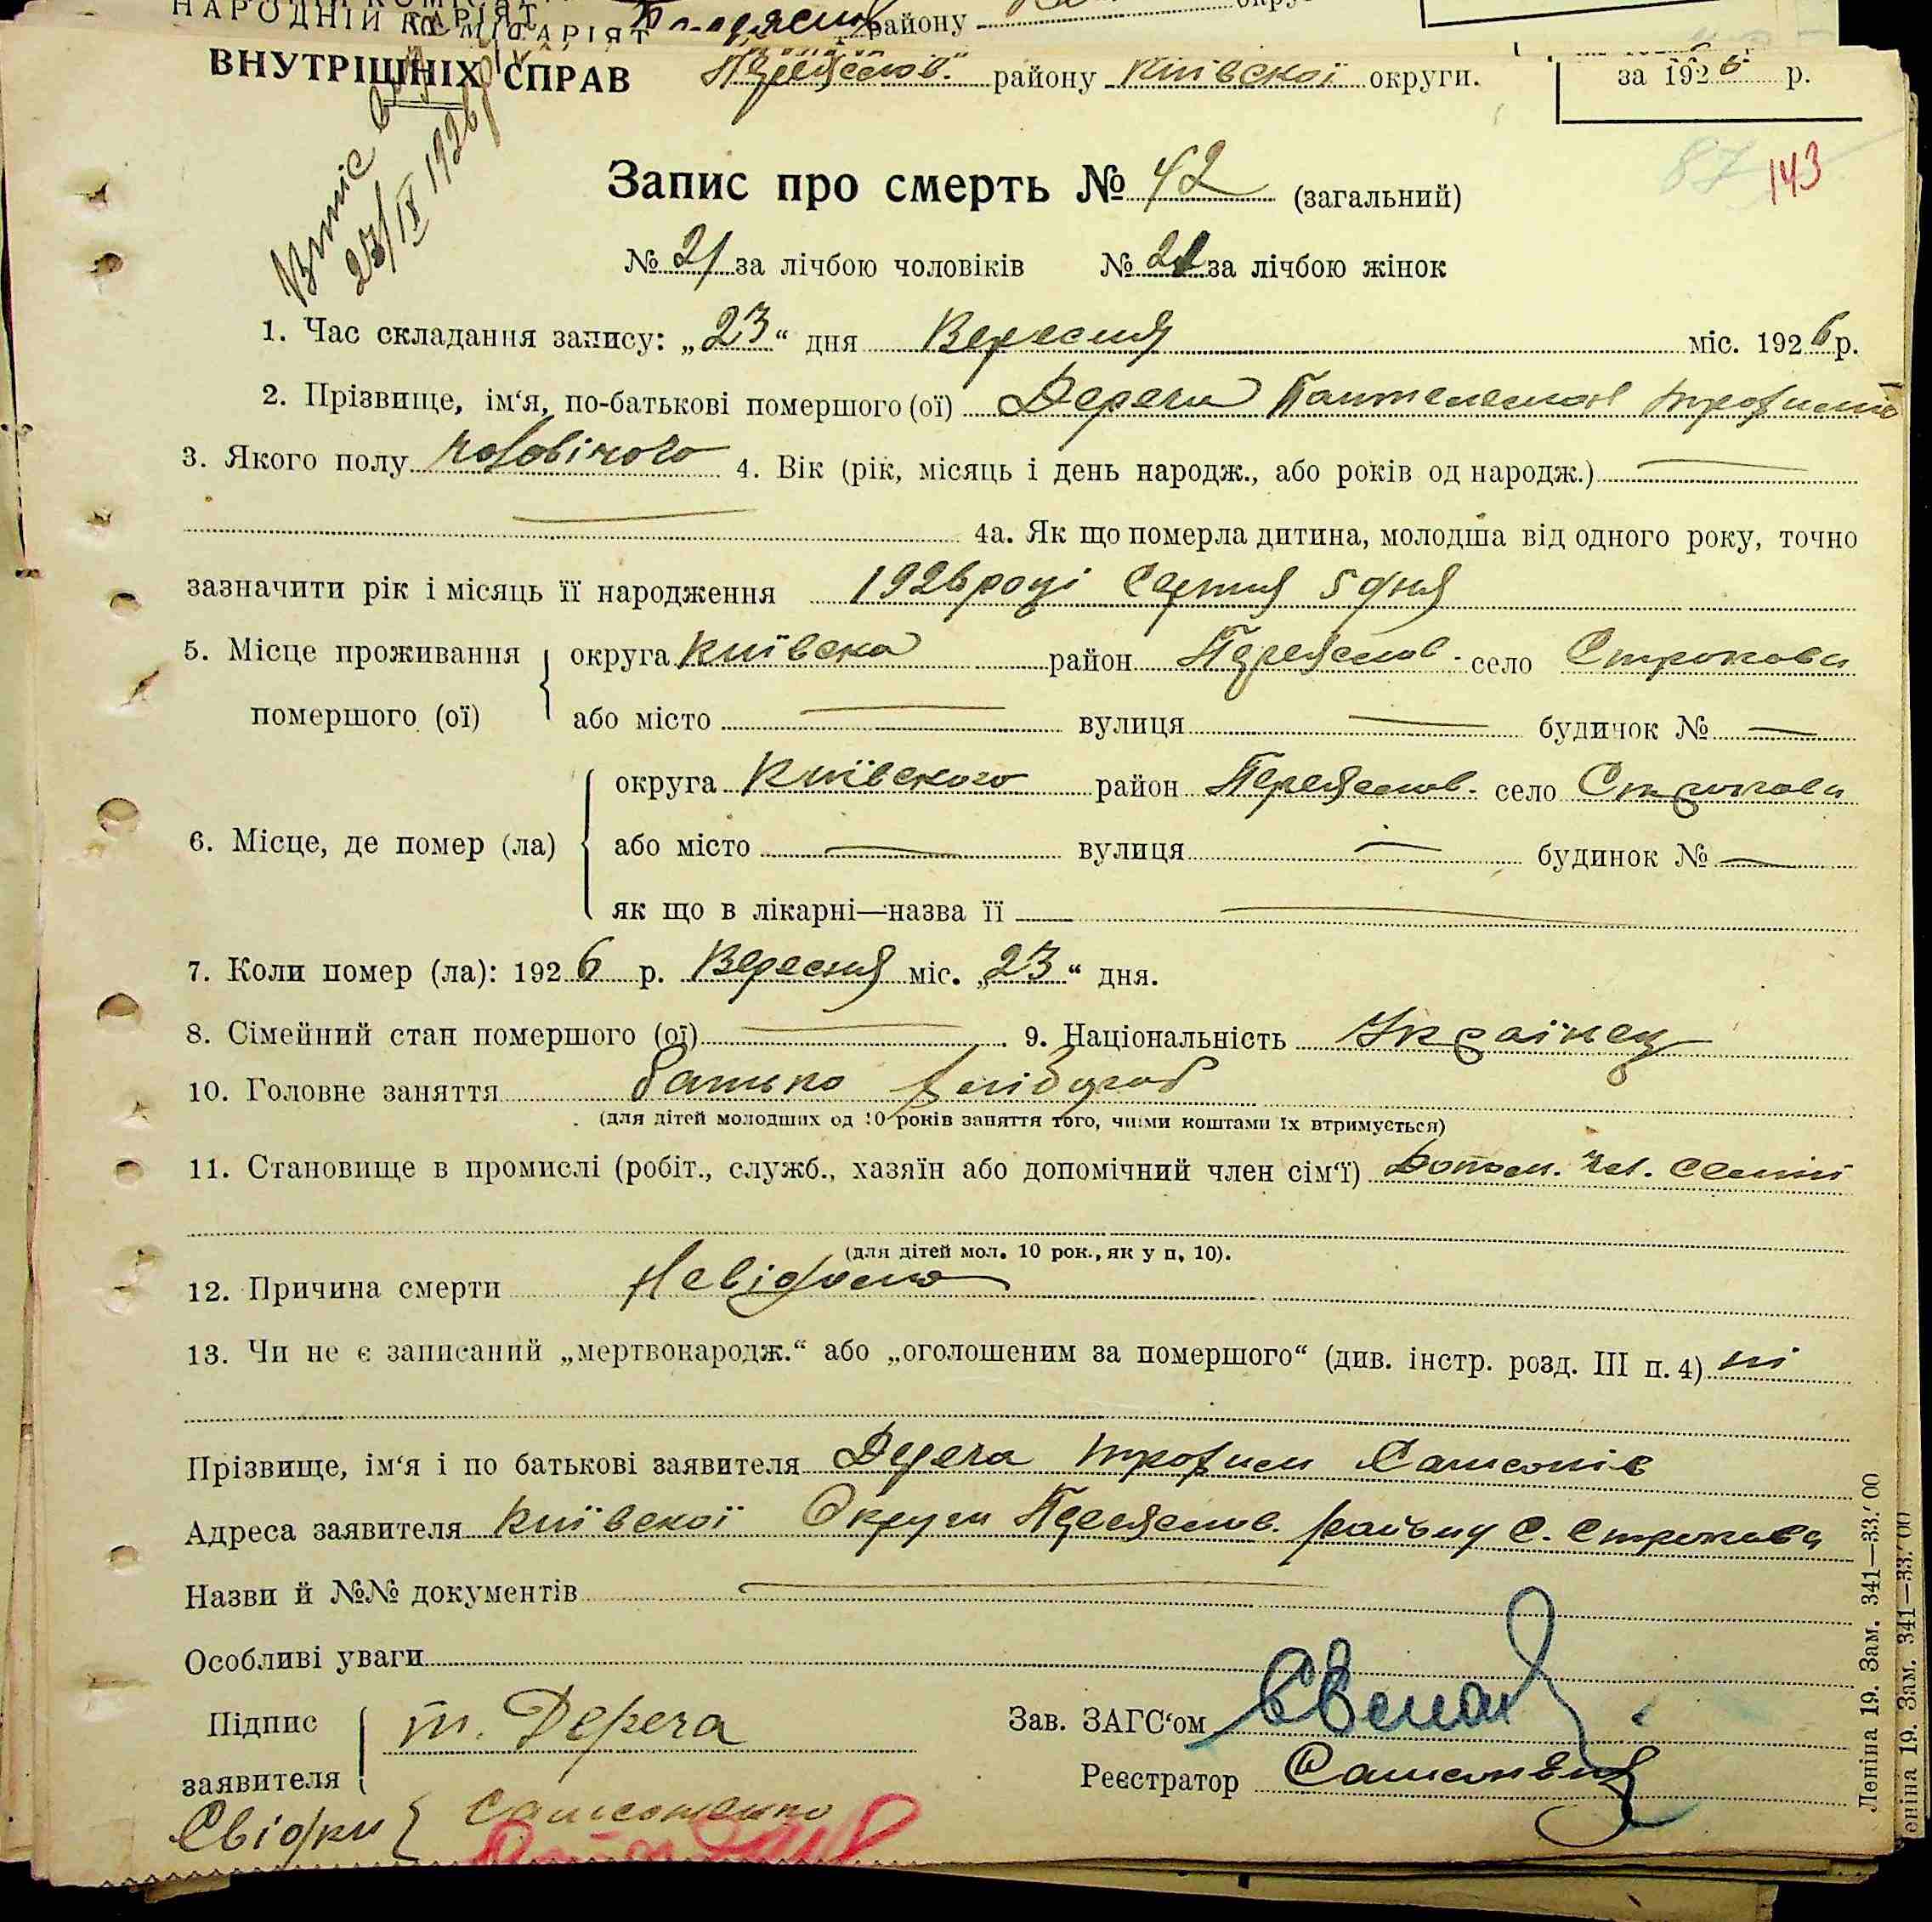 НАРОДНІЙ КОМІСАРІЯТ району
ВНУТРІШНІХ СПРАВ Переяслов. району Київскої округи. за 1926 р.
27/IX 1926 р
Запис про смерть № 42 (загальний)
87 143
№ 21 за лічбою чоловіків № 21 за лічбою жінок
1. Час складання запису: „23“ дня Вересня міс. 1926 р.
2. Прізвище, ім‘я, по-батькові помершого (ої) Дереча Пантелемон Трофимо
3. Якого полу чоловічого 4. Вік (рік, місяць і день народж., або років од народж.) —
— 4а. Як що померла дитина, молодша від одного року, точно
зазначити рік і місяць її народження 1926 році Серпня 5 дня
5. Місце проживання округа Київска район Переяслов. село Строкова
помершого (ої) або місто — вулиця — будинок № —
округа Київского район Переяслов. село Строкова
6. Місце, де помер (ла) або місто — вулиця — будинок № —
як що в лікарні—назва її —
7. Коли помер (ла): 1926 р. Вересня міс. „23“ дня.
8. Сімейний стан помершого (ої) — . 9. Національність Украінец
10. Головне заняття батько хлібороб
(для дітей молодших од 10 років заняття того, чиїми коштами їх втримується)
11. Становище в промислі (робіт., служб., хазяїн або допомічний член сім‘ї) Допом. чл. семї
(для дітей мол. 10 рок., як у п. 10).
12. Причина смерти Невідомо
13. Чи не є записаний „мертвонародж.“ або „оголошеним за помершого“ (див. інстр. розд. III п. 4) ні
Прізвище, ім‘я і по батькові заявителя Дереча Трофим Самсонів
Адреса заявителя Київскої Округи Переяслов. району С. Строкова
Назви й №№ документів —
Особливі уваги
Підпис т. Дереча Зав. ЗАГС‘ом
заявителя Реєстратор
Свідки { Самсоненко
Леніна 19. Зам. 341—33.′00
еніна 19. Зам. 341—33.′00